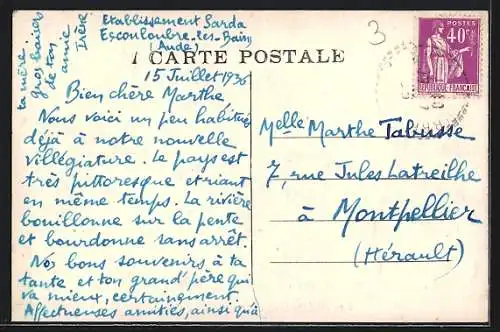 Etablissement Sarda
Escouloubre-les-Bains
(Aude)
CARTE POSTALE
15 Juillet 1936
Bien chère Marthe
Nous voici un peu habitués
déjà à notre nouvelle
villégiature. Le pays est
très pittoresque et riant
en même temps. La rivière
bouillonne sur la pente
et bourdonne sans arrêt.
Nos bons souvenirs à ta
tante et ton grand'père qui
va mieux, certainement.
Affectueuses amitiés, ainsi qu'à
ta mère.
gros baisers
de ton
amie
Irène
3
POSTES
40c
REPUBLIQUE FRANÇAISE
Melle Marthe Tabusse
7, rue Jules Latreilhe
à Montpellier
(Hérault)